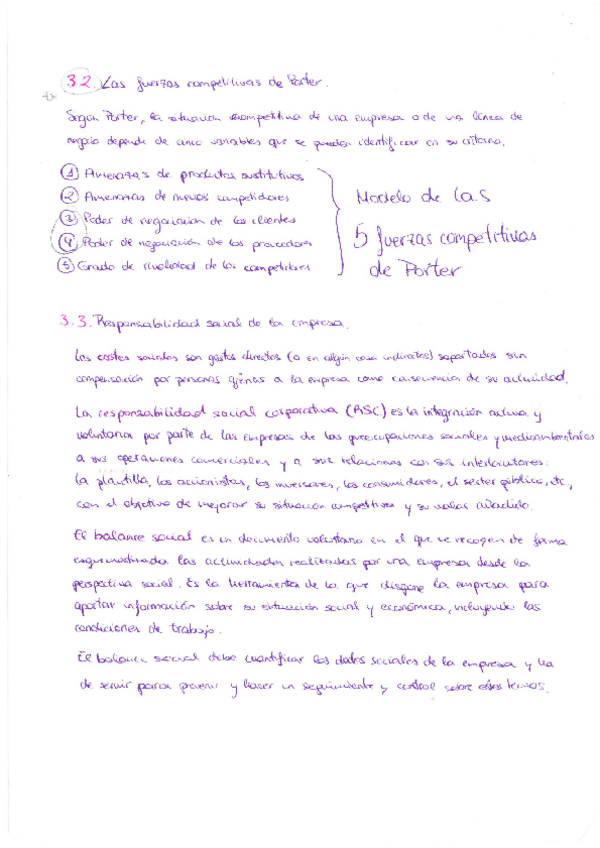 3.2. Las fuerzas competitivas de Porter.
Según Porter, la situación competitiva de una empresa o de una línea de
negocio depende de cinco variables que se pueden identificar en su entorno.
① Amenazas de productos sustitutivos
② Amenazas de nuevos competidores
③ Poder de negociación de los clientes
④ Poder de negociación de los proveedores
⑤ Grado de rivalidad de los competidores
Modelo de las
5 fuerzas competitivas
de Porter
3.3. Responsabilidad social de la empresa.
Los costes sociales son gastos directos (o en algún caso indirectos) soportados sin
compensación por personas ajenas a la empresa como consecuencia de su actividad.
La responsabilidad social corporativa (RSC) es la integración activa y
voluntaria por parte de las empresas de las preocupaciones sociales y medioambientales
a sus operaciones comerciales y a sus relaciones con sus interlocutores:
la plantilla, los accionistas, los inversores, los consumidores, el sector público, etc,
con el objetivo de mejorar su situación competitiva y su valor añadido.
El balance social es un documento voluntario en el que se recogen de forma
esquematizada las actividades realizadas por una empresa desde la
perspectiva social. Es la herramienta de la que dispone la empresa para
aportar información sobre su situación social y económica, incluyendo las
condiciones de trabajo.
El balance social debe cuantificar los datos sociales de la empresa y ha
de servir para prevenir y hacer un seguimiento y control sobre estos temas.